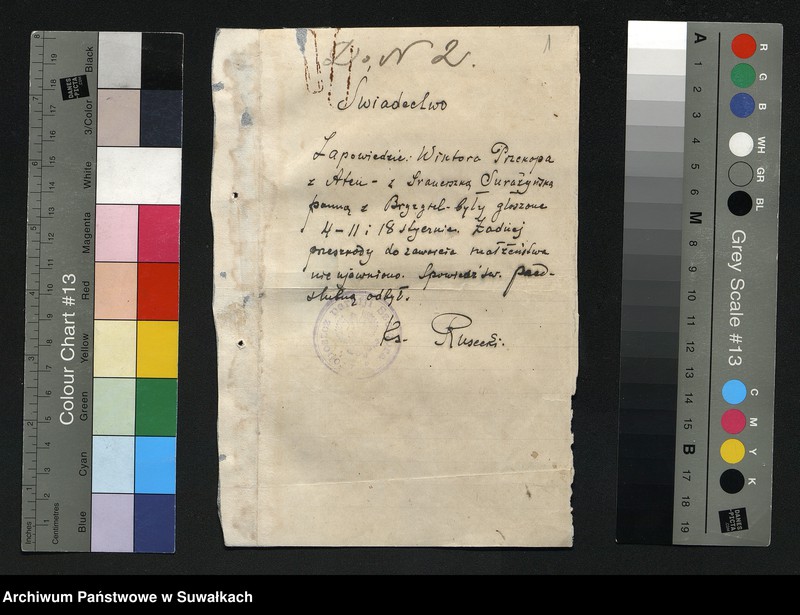 Do N 2.
1
Świadectwo
Zapowiedzie: Wiktora Przekopa
z Aten - z Franciszką Surażyńską
panną z Bryzgiel - były głoszone
4-11 i 18 stycznia. Żadnej
przeszkody do zawarcia małżeństwa
nie ujawniono. Spowiedź św. przed-
ślubną odbył.
Ks. Rusecki.
Colour Chart #13
Blue
Cyan
Green
Yellow
Red
Magenta
White
3/Color
Black
Inches
Centimetres
DANES
PICTA
Grey Scale #13
A
1
2
3
4
5
6
M
8
9
10
11
12
13
14
15
B
17
18
19
R
G
B
WH
GR
BL
C
M
Y
K
DANES
PICTA
Archiwum Państwowe w Suwałkach